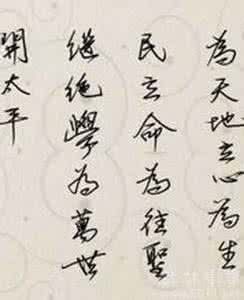 為天地立心為生
民立命為往聖
繼絕學為萬世
開太平